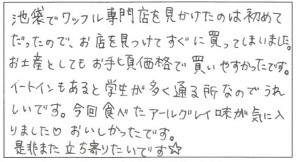 池袋でワッフル専門店を見かけたのは初めて
だったので、お店を見つけてすぐに買ってしまいました。
お土産としてもお手頃価格で買いやすかったです。
イートインもあると学生が多く通る所なのでうれ
しいです。今回食べたアールグレイ味が気に入
りました♡ おいしかったです。
是非また立ち寄りたいです☆